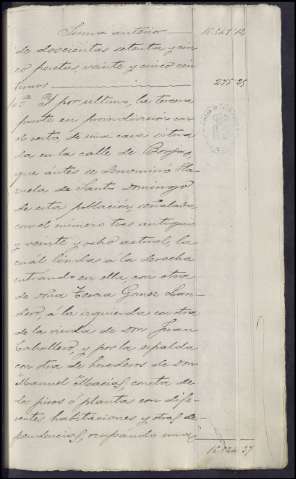 Suma anterior
de doscientas setenta y cin
co pesetas, veinte y cinco cen
timos 275 25
10ª Y por ultimo, la tercera
parte en proindivision con
el resto de una casa situa
da en la calle de
que antes se denominó Pla
zuela de Santo Domingo
de esta poblacion, señalada
con el número tres antiguo
y veinte y ocho actual, la
cual linda a la derecha
entrando en ella con otra
de Doña Teresa Gomez
á la izquierda con otra
de la viuda de Don Juan
Caballero, y por la espalda
con otra de herederos de Don
Manuel consta de
dos pisos ó plantas con dife
rentes habitaciones y otras de
pendencias, ocupando una